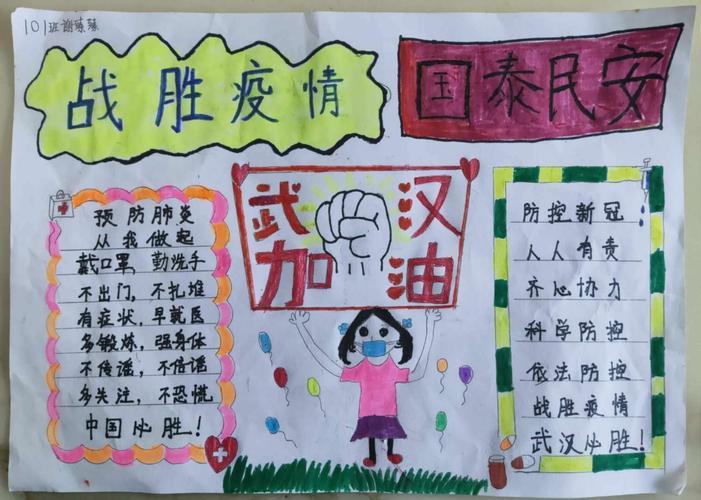 101班谢臻臻
战胜疫情
国泰民安
武汉
加油
预防肺炎
从我做起
戴口罩,勤洗手
不出门,不扎堆
有症状,早就医
多锻炼,强身体
不传谣,不信谣
多关注,不恐慌
中国必胜!
防控新冠
人人有责
齐心协力
科学防控
依法防控
战胜疫情
武汉必胜!